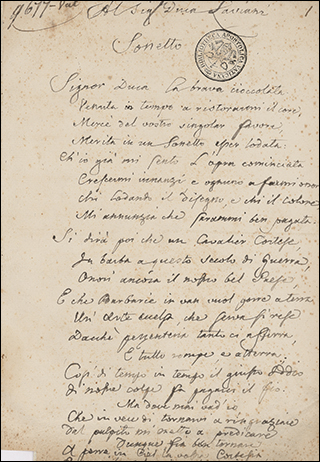 9677 Vat
Al Sigr Duca Saviani 1
Sonetto
BIBLIOTHECA APOSTOLICA VATICANA
Signor Duca la brava cioccolata
Venuta in tempo a ristorarmi il core,
Mercè dal vostro singolar favore,
Merita in un Sonetto esser lodata.
Ch'io già mi sento l'opra cominciata
Crescermi innanzi e ognuno a farmi onor
Chi lodando il disegno, e chi il colore
Mi annunzia che sarammi ben pagata.
Si dirà poi che un Cavalier Cortese
In barba a questo Secolo di Guerra,
Onori ancora il nostro bel Paese,
E che Barbarie in van vuol porre a terra
Un' Arte
Dacchè pezzenteria tanto ci afferra,
E tutto rompe e atterra.
Così di tempo in tempo il giusto Iddio
Di nostre colpe fa pagarci il fio.
Ma dove mai vad'io
Che in vece di tornare a ringraziare
Dal pulpito mi metto a predicare
Dunque fia ben tornare
A